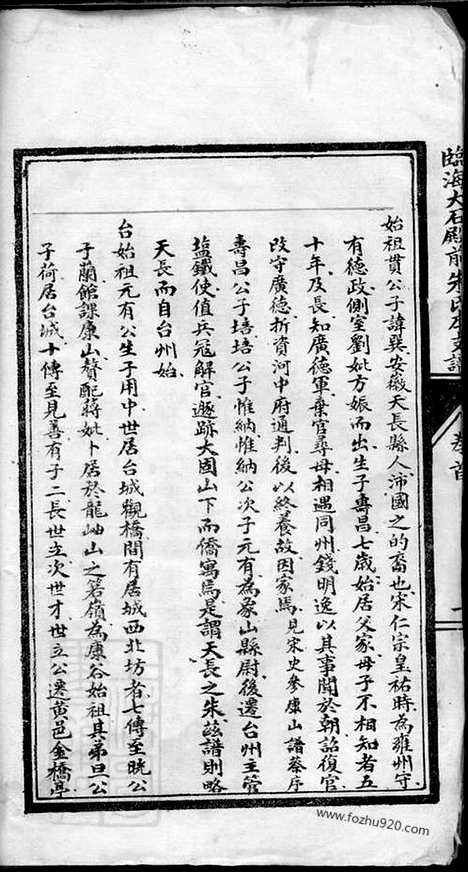 臨海大石殿前朱氏本支譜
卷首
一
始祖貫公子諱巽安徽天長縣人沛國之的裔也宋仁宗皇祐時為雍州守
有德政側室劉妣方娠而出生子壽昌七歲始居父家母子不相知者五
十年及長知廣德軍棄官尋母相遇同州錢明逸以其事聞於朝詔復官
改守廣德折資河中府通判後以終養故因家焉見宋史參康山譜蔡序
壽昌公子培培公子惟納惟納公次子元有為象山縣尉後遷台州主管
塩鐵使值兵寇解官遯跡大固山下而僑寓焉是謂天長之朱茲譜則略
天長而自台州始
台始祖元有公生子用中世居台城觀橋間有居城西北坊者七傳至曉公
子蘭館課康山贅配蔣妣卜居於龍岫山之箬嶺為康谷始祖其弟旦公
子荷居台城十傳至見善有子二長世立次世才世立公遷黃邑金橋亭
www.fozhu920.com